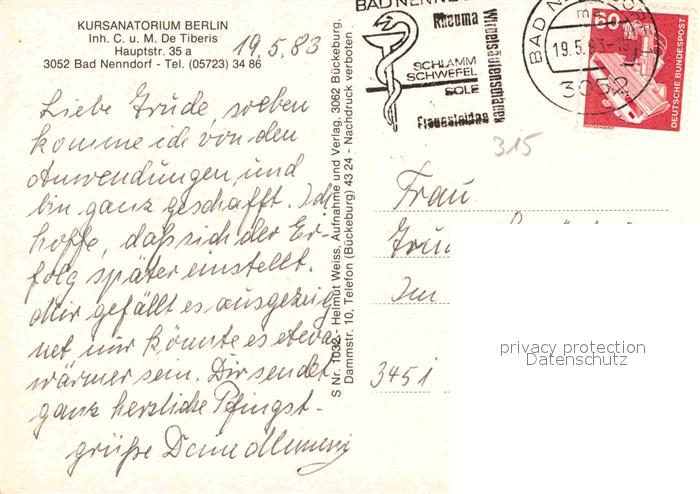 KURSANATORIUM BERLIN
Inh. C. u. M. De Tiberis
Hauptstr. 35 a
3052 Bad Nenndorf - Tel. (05723) 34 86
19.5.83
Liebe Trude, soeben
komme ich von den
Anwendungen und
bin ganz geschafft. Ich
hoffe, daß sich der Er-
folg später einstellt.
Mir gefällt es ausgezeig
net nur könnte es etwas
wärmer sein. Dir sendet
ganz herzliche Pfingst-
grüße Deine
S Nr. 1032 - Helmut Weiss, Aufnahme und Verlag, 3062 Bückeburg,
Dammstr. 10, Telefon (Bückeburg) 43 24 - Nachdruck verboten
BAD NENNDORF
Rheuma
Wirbelsäulenschäden
SCHLAMM
SCHWEFEL
SOLE
Frauenleiden
BAD NENNDORF 1
19.5.83
3052
60
DEUTSCHE BUNDESPOST
315
Frau
Im
3451
privacy protection
Datenschutz